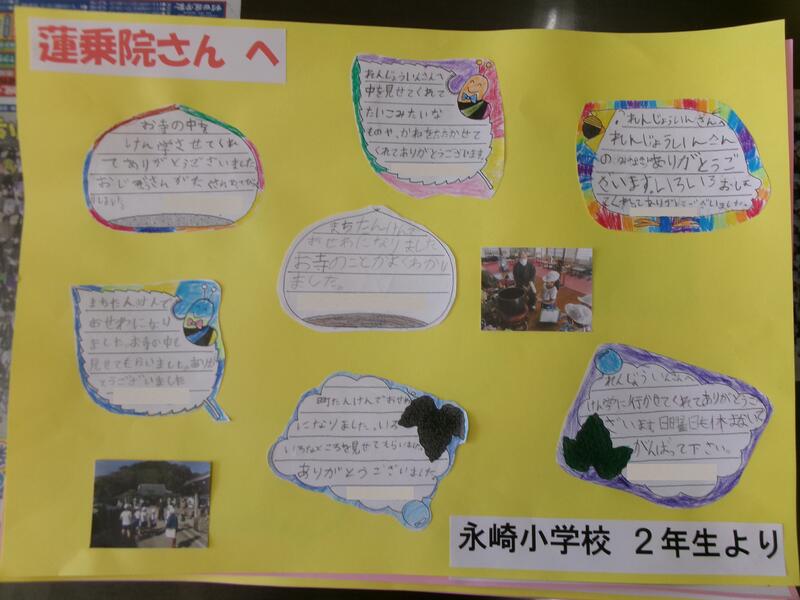 蓮乗院さん へ
お寺の中を
けん学させてくれ
てありがとうございました
おじぞうさんがたくさん
れんじょういんさんへ
中を見せてくれて
たいこみたいな
ものや、かねをたたかせて
くれてありがとうございます
れんじょういんさんへ
れんじょういんさん
の みなさんありがとうご
ざいます。いろいろ おしえ
てくれてありがとうございました。
まちたんけんで
おせわになりました
お寺のことがよくわかり
ました。
まちたんけんで
おせわになり
ました。お寺の中も
見せてもらいました。ありが
とうございました
町たんけんでおせわ
になりました。いろ
いろなところを見せてもらいました
ありがとうございました。
れんじょういんさんへ
けん学に行かせてくれてありがとうご
ざいます日曜日も休まないで
がんばって下さい。
永崎小学校 2年生より